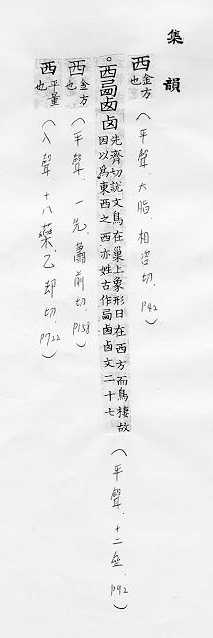 集韻
西 金方也 (平聲.六脂.相咨切.P42)
。西卥卤 先齊切說文鳥在巢上象形日在西方而鳥棲故
因以為東西之西亦姓古作卥卤文二十七 (平聲.十二.P92)
西 金方也 (平聲.一先.蕭前切.P158)
西 平量也 (入聲.十八藥.乙却切.P722)